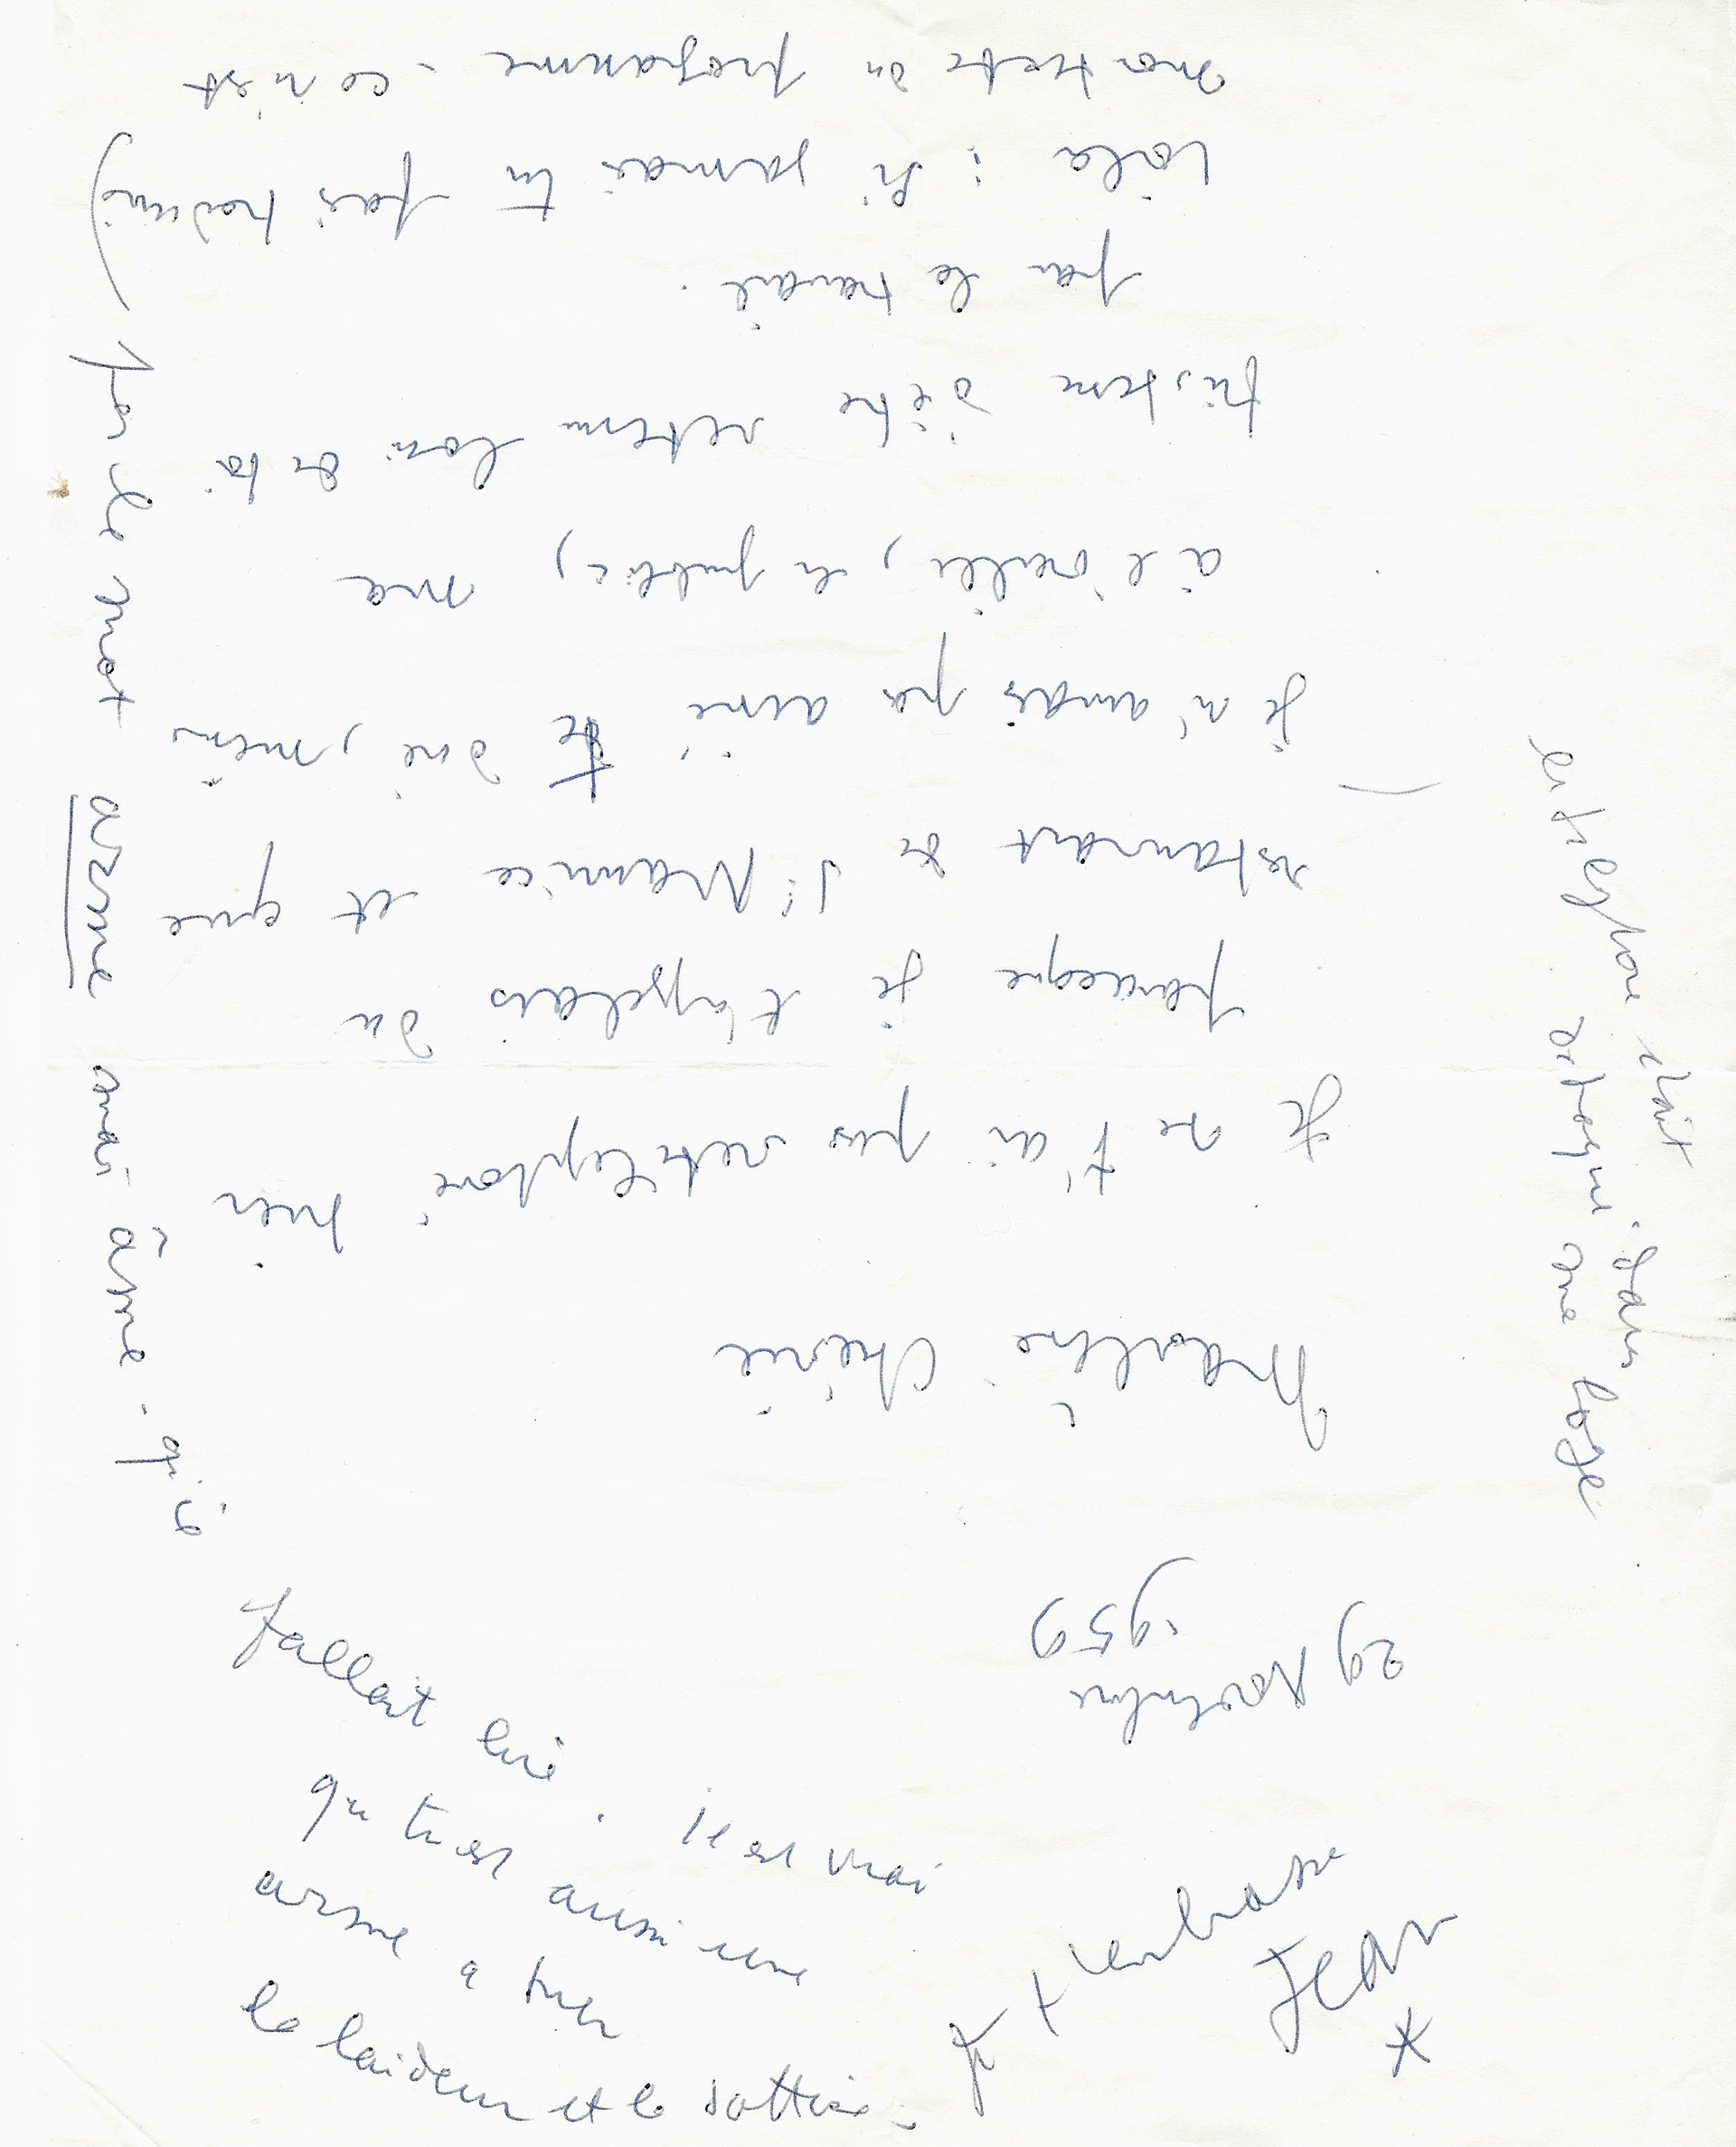 29 Novembre
1959
Marlène Chérie
Je ne t'ai pas retéléphoné hier
parceque je t'appelais du
restaurant de St Maurice et que
je n'aurais pas aimé te dire, même
à l'oreille, en public, ma
tristesse d'être retenu loin de toi
par le travail.
Voilà : Si jamais tu fais traduire
mon texte du programme - ce n'est
pas le mot arme mais âme. qu'il
fallait lire. Il est vrai
que tu es aussi une
arme à tuer
la laideur et la sottise -
Je t'embrasse
Jean
*
téléphone était dans
loge